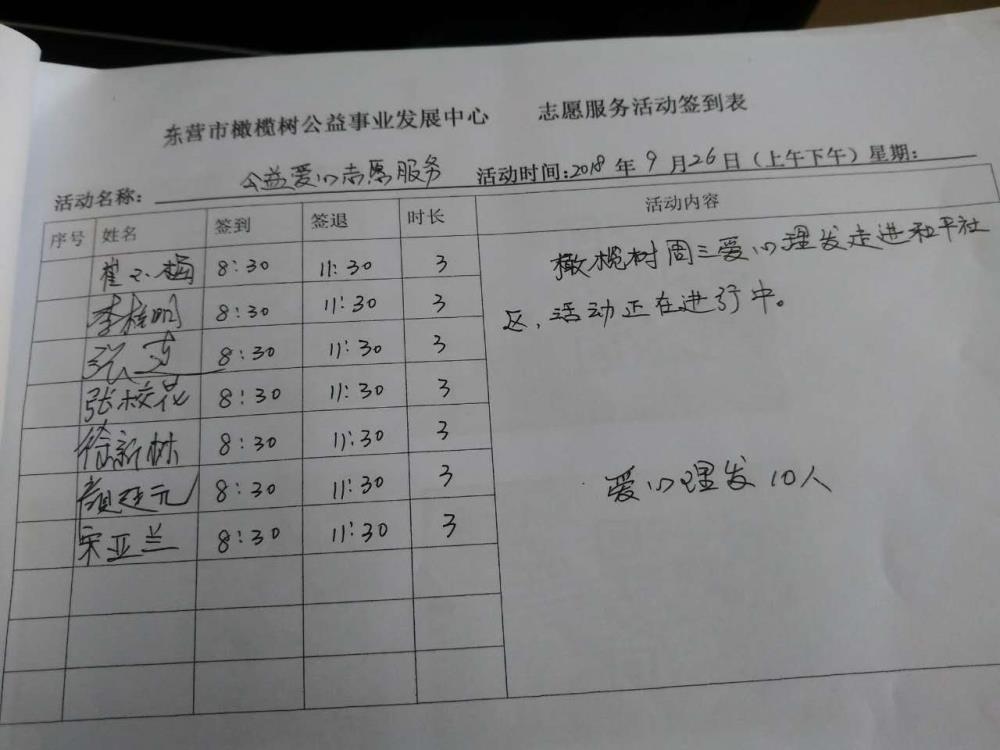 东营市橄榄树公益事业发展中心 志愿服务活动签到表
活动名称: 公益爱心志愿服务 活动时间:2018年9月26日(上午下午)星期:
序号 姓名 签到 签退 时长 活动内容
崔小梅 8:30 11:30 3
李桂明 8:30 11:30 3
8:30 11:30 3
张校花 8:30 11:30 3
徐新林 8:30 11:30 3
颜廷元 8:30 11:30 3
宋亚兰 8:30 11:30 3
橄榄树周三爱心理发走进和平社
区,活动正在进行中。
爱心理发10人